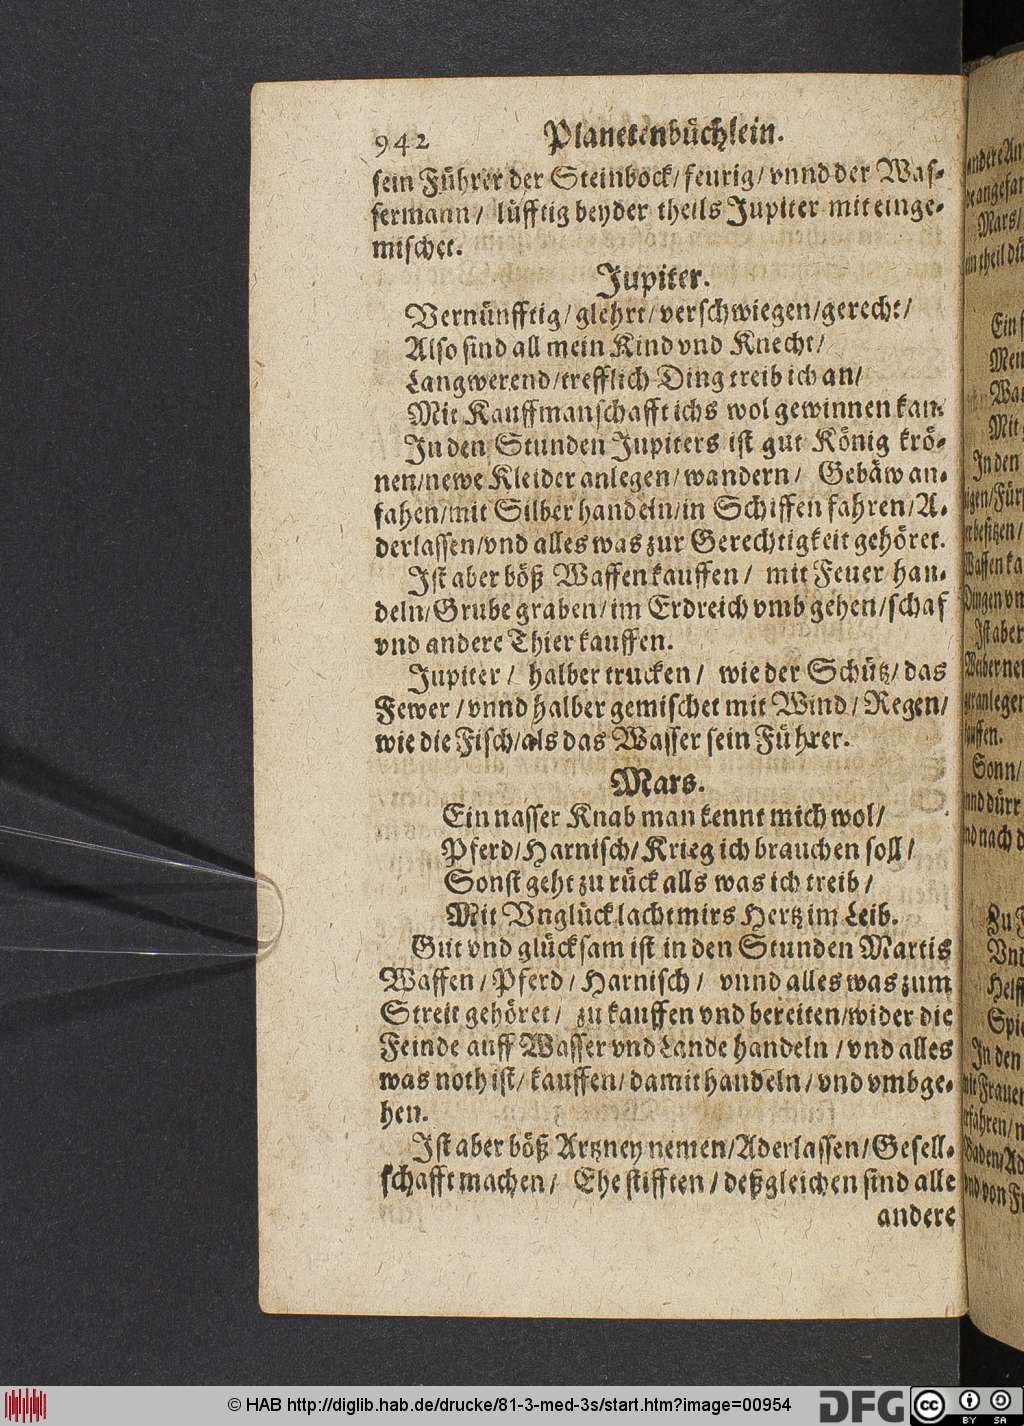 942 Planetenbüchlein.
sein Führer der Steinbock/ feurig/ vnnd der Was-
sermann/ lüfftig beyder theils Jupiter mit einge-
mischet.
Jupiter.
Vernünfftig/ glehrt/ verschwiegen/ gerecht/
Also sind all mein Kind vnd Knecht/
Langwerend/ trefflich Ding treib ich an/
Mit Kauffmanschafft ichs wol gewinnen kan.
In den Stunden Jupiters ist gut König krö-
nen/ newe Kleider anlegen/ wandern/ Gebäw an-
fahen/ mit Silber handeln/ in Schiffen fahren/ A-
derlassen/ vnd alles was zur Gerechtigkeit gehöret.
Ist aber böß Waffen kauffen/ mit Feuer han-
deln/ Grube graben/ im Erdreich vmb gehen/ schaf
vnd andere Thier kauffen.
Jupiter/ halber trucken/ wie der Schütz/ das
Fewer/ vnnd halber gemischet mit Wind/ Regen/
wie die Fisch/ als das Wasser sein Führer.
Mars.
Ein nasser Knab man kennt mich wol/
Pferd/ Harnisch/ Krieg ich brauchen soll/
Sonst geht zu rück alls was ich treib/
Mit Vnglück lacht mirs Hertz im Leib.
Gut vnd glücksam ist in den Stunden Martis
Waffen/ Pferd/ Harnisch/ vnnd alles was zum
Streit gehöret/ zu kauffen vnd bereiten/ wider die
Feinde auff Wasser vnd Lande handeln/ vnd alles
was noth ist/ kauffen/ damit handeln/ vnd vmbge-
hen.
Ist aber böß Artzney nemen/ Aderlassen/ Gesell-
schafft machen/ Ehe stifften/ deßgleichen sind alle
andere
© HAB http://diglib.hab.de/drucke/81-3-med-3s/start.htm?image=00954
DFG
cc BY SA